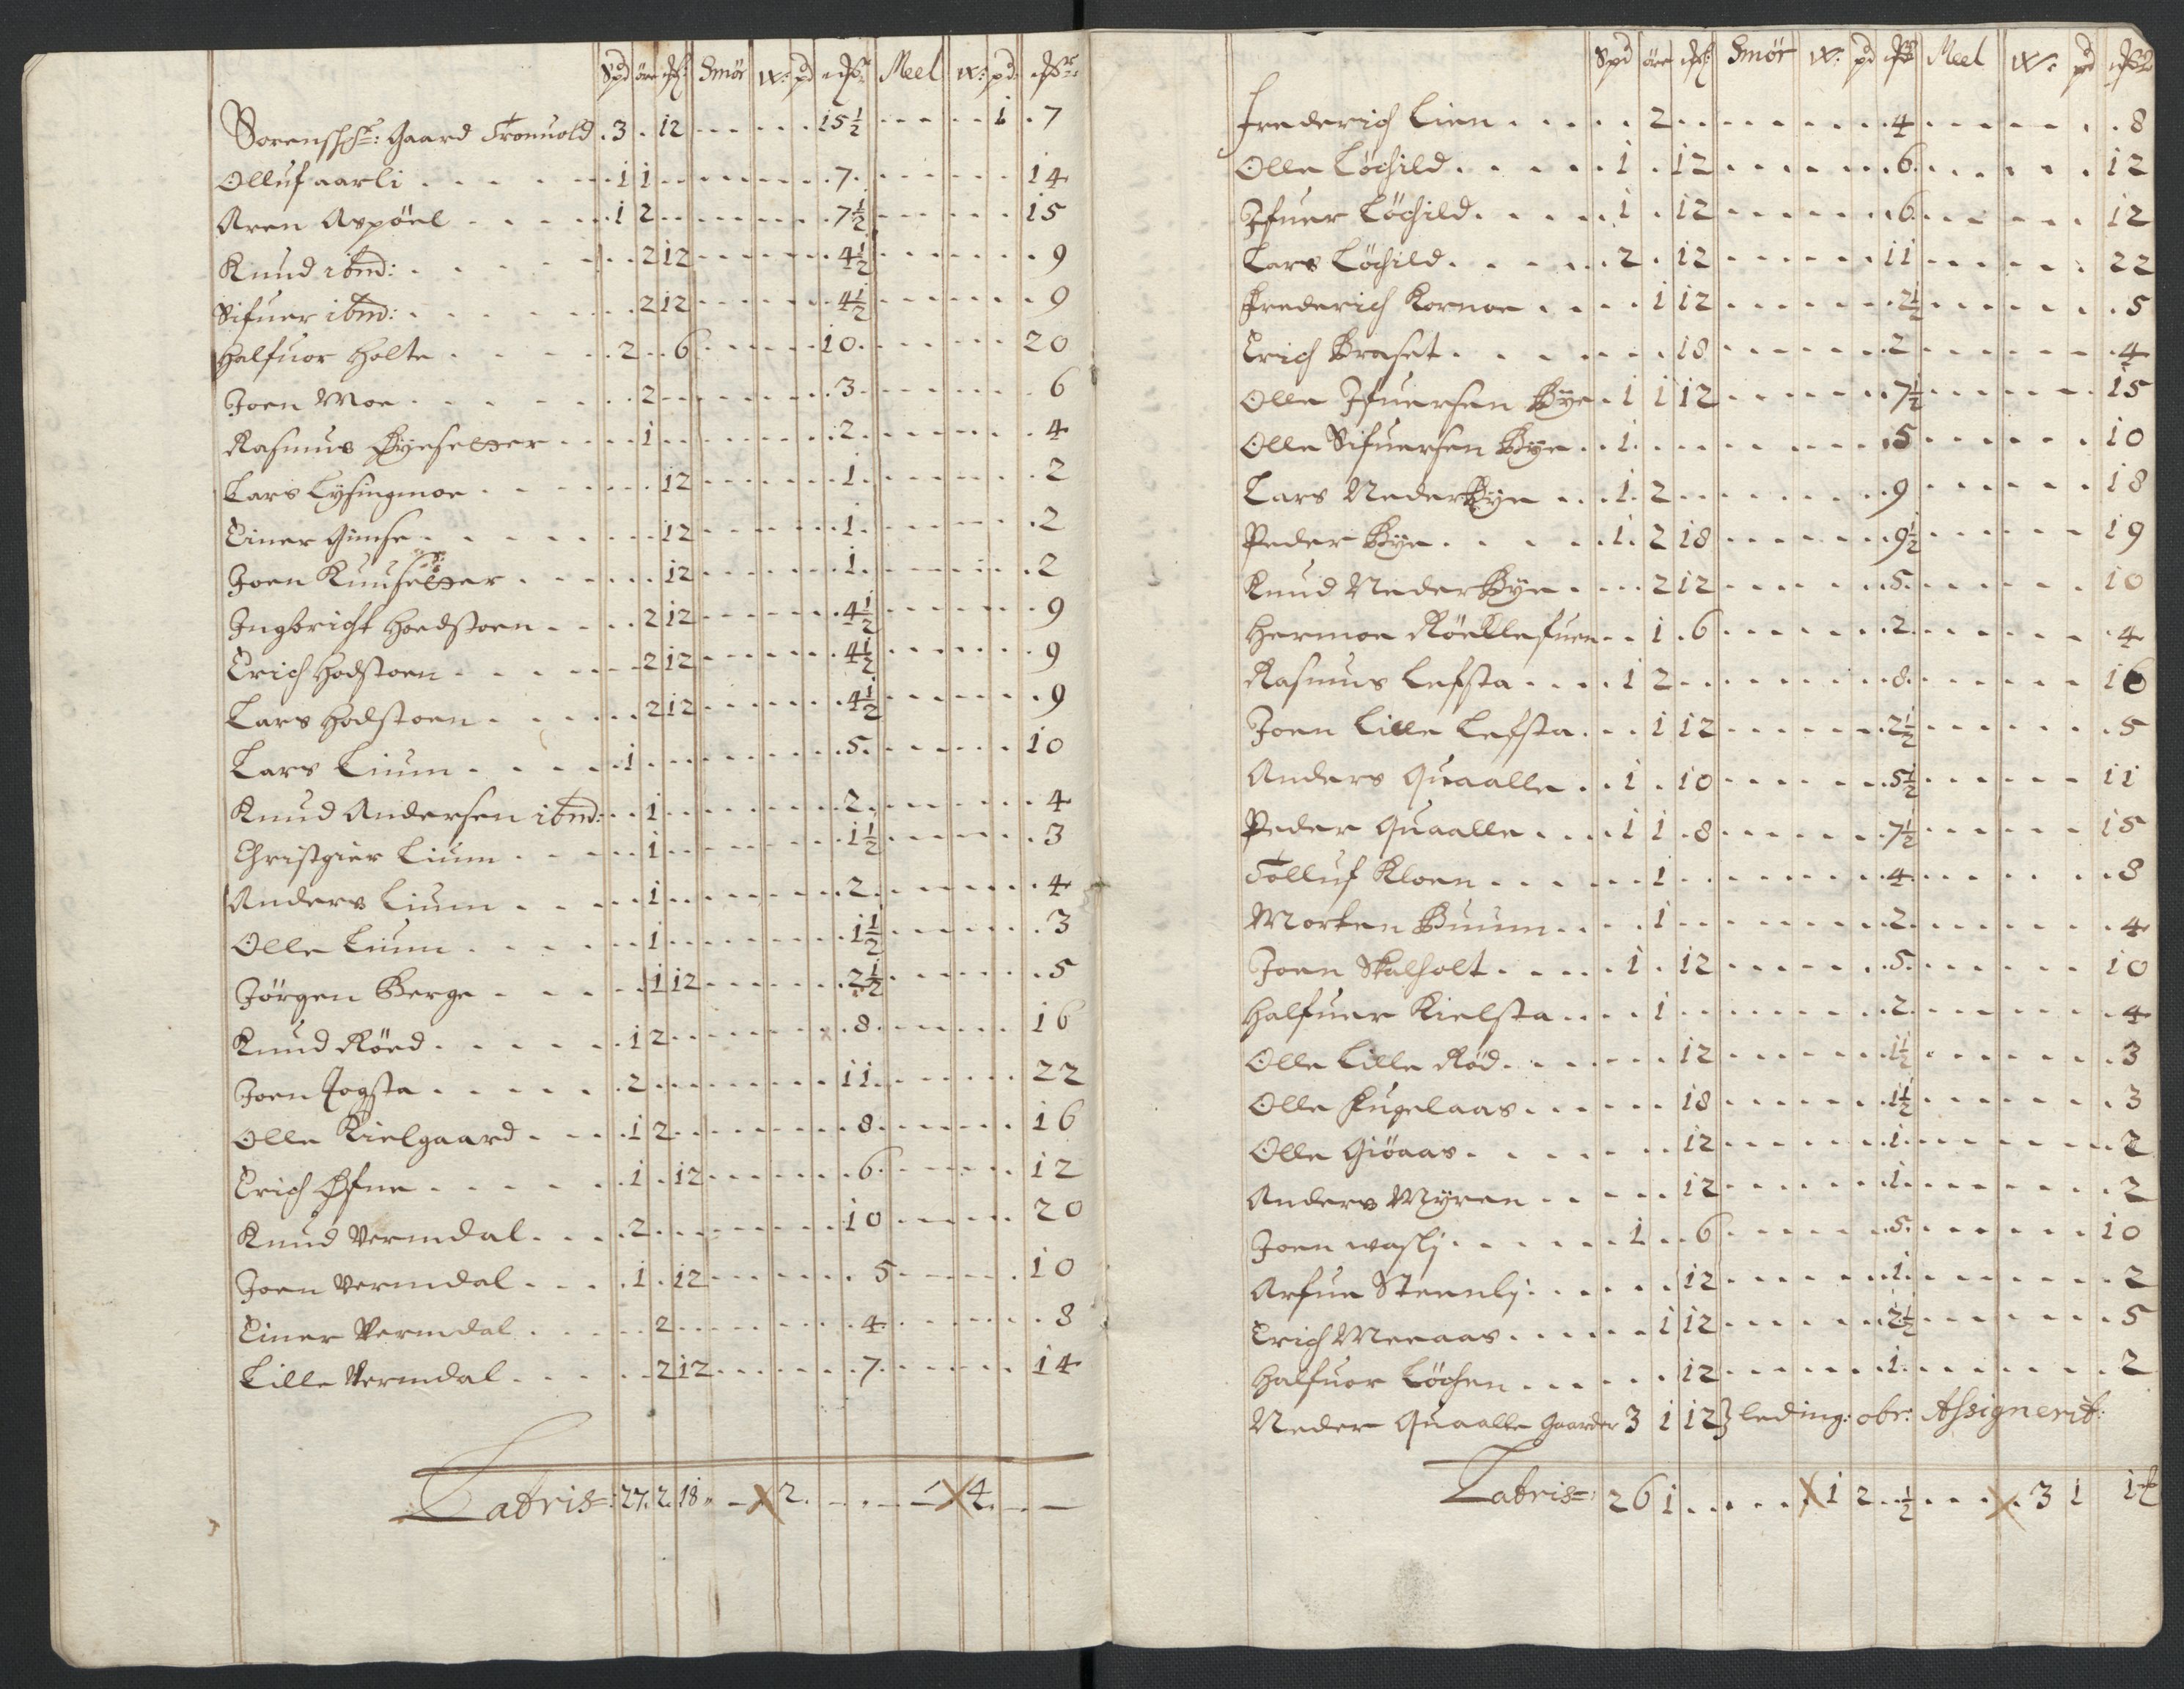 Spd öre Smör W: pd Meel W: pd
Sorensch: Gaard Tronuold . 3 . 12 . . . . . . 15½ . . . . . 1 . 7
Olluf aarli . . . . . . . 1 1 . . . . . . . . 7 . . . . . . . 14
Aren Aspöel . . . . . . 1 2 . . . . . . . . 7½ . . . . . . 15
Knud ibm: . . . . . . . . 2 12 . . . . . . . 4½ . . . . . . . 9
Sifuer ibm: . . . . . . . . 2 12 . . . . . . . 4½ . . . . . . . 9
Halfuor Holte . . . . . . 2 . . 6 . . . . . . 10 . . . . . . . 20
Joen Moe . . . . . . . . 2 . . . . . . . . . 3 . . . . . . . 6
Rasmus Byesetter . . . . 1 . . . . . . . . . 2 . . . . . . . 4
Lars Lysingmoe . . . . . . . 12 . . . . . . . 1 . . . . . . . 2
Einer Gimse . . . . . . . . 12 . . . . . . . 1 . . . . . . . 2
Joen Kuusetter . . . . . . 12 . . . . . . . 1 . . . . . . . 2
Ingbricht Hoedstoen . . . . 2 12 . . . . . . . 4½ . . . . . . . 9
Erich Hodstoen . . . . . . . 2 12 . . . . . . . 4½ . . . . . . . 9
Lars Hodstoen . . . . . . . 2 12 . . . . . . . 4½ . . . . . . . 9
Lars Lium . . . . . 1 . . . . . . . . . . 5 . . . . . . . 10
Knud Andersen ibm: . . 1 . . . . . . . . . 2 . . . . . . . 4
Christgier Lium . . . . . . 1 . . . . . . . . 1½ . . . . . . . 3
Anders Lium . . . . . . 1 . . . . . . . . . 2 . . . . . . . 4
Olle Lium . . . . . . . 1 . . . . . . . . . 1½ . . . . . . . 3
Jörgen Berge . . . . . . 1 12 . . . . . . . 2½ . . . . . . . 5
Knud Röed . . . . . . 1 2 . . . . . . . . 8 . . . . . . . 16
Joen Fogsta . . . . . . 2 . . . . . . . . . 11 . . . . . . . 22
Olle Kielgaard . . . . 1 2 . . . . . . . . 8 . . . . . . . 16
Erich Øfne . . . . . . 1 . 12 . . . . . . . 6 . . . . . . . 12
Knud Vermdal . . . . 2 . . . . . . . . . 10 . . . . . . 20
Joen Vermdal . . . . 1 . 12 . . . . . . . 5 . . . . . . 10
Einer Vermdal . . . . . 2 . . . . . . . . . 4 . . . . . . . 8
Lille Vermdal . . . . . . 2 12 . . . . . . . 7 . . . . . . . 14
Latris: 27. 2. 18 . – X 2. – . – – X 4. – –
Spd öre Smör W: pd Meel W: pd
Frederich Lien . . . . . . 2 . . . . . . . . . 4 . . . . . . . 8
Olle Löchild . . . . . 1 . 12 . . . . . . . 6 . . . . . . . 12
Ifuer Löchild . . . . . 1 . 12 . . . . . . . 6 . . . . . . . 12
Lars Löchild . . . . . 2 . 12 . . . . . . 11 . . . . . . . 22
Frederich Kornoe . . . . 1 12 . . . . . . . 2½ . . . . . . . 5
Erich Braset . . . . . . . 18 . . . . . . . 2 . . . . . . . 4
Olle Ifuersen Bye . 1 1 12 . . . . . . . 7½ . . . . . . . 15
Olle Sifuersen Bye . . 1 . . . . . . . . . 5 . . . . . . . 10
Lars Nederbye . . . 1 . 2 . . . . . . . . 9 . . . . . . . 18
Peder Bye . . . . . 1 . 2 18 . . . . . . . 9½ . . . . . . . 19
Knud Nederbye . . . . 2 12 . . . . . . . 5 . . . . . . . 10
Hermoe Röeklefuen . . 1 . 6 . . . . . . . 2 . . . . . . . 4
Rasmus Lefsta . . . . 1 2 . . . . . . . . . 8 . . . . . . . 16
Joen Lille Lefsta . . . 1 12 . . . . . . . 2½ . . . . . . . 5
Anders Quaalle . . 1 . 10 . . . . . . . 5½ . . . . . . . 11
Peder Quaalle . . . . 1 1 . 8 . . . . . . . 7½ . . . . . . . 15
Tolluf Kloen . . . . . . . 1 . . . . . . . . 4 . . . . . . . 8
Morten Buum . . . . 1 . . . . . . . . . 2 . . . . . . . 4
Joen Skalholt . . . . . 1 . 12 . . . . . . . 5 . . . . . . . 10
Halfuer Kielsta . . . . 1 . . . . . . . . . 2 . . . . . . . 4
Olle Lille Röd . . . . . . 12 . . . . . . . 1½ . . . . . . . 3
Olle Fugelaas . . . . . . 18 . . . . . . . 1½ . . . . . . . 3
Olle Giöaas . . . . . . . 12 . . . . . . . 1 . . . . . . . 2
Anders Myren . . . . . . 12 . . . . . . . 1 . . . . . . . 2
Joen waslj . . . . . . 1 . . 6 . . . . . . . 5 . . . . . . . 10
Arfue Steenlj . . . . . . 12 . . . . . . . 1 . . . . . . . 2
Erich Meeaas . . . . . . 1 12 . . . . . . . 2½ . . . . . . . 5
Halfuor Löchen . . . . . . 12 . . . . . . . 1 . . . . . . . 2
Neder Quaalle Gaarder 3 1 12 } leding: obr: Assignerit:
Latris: 26 1 . . . . . X 1 2 . ½ . . . X . 3 1